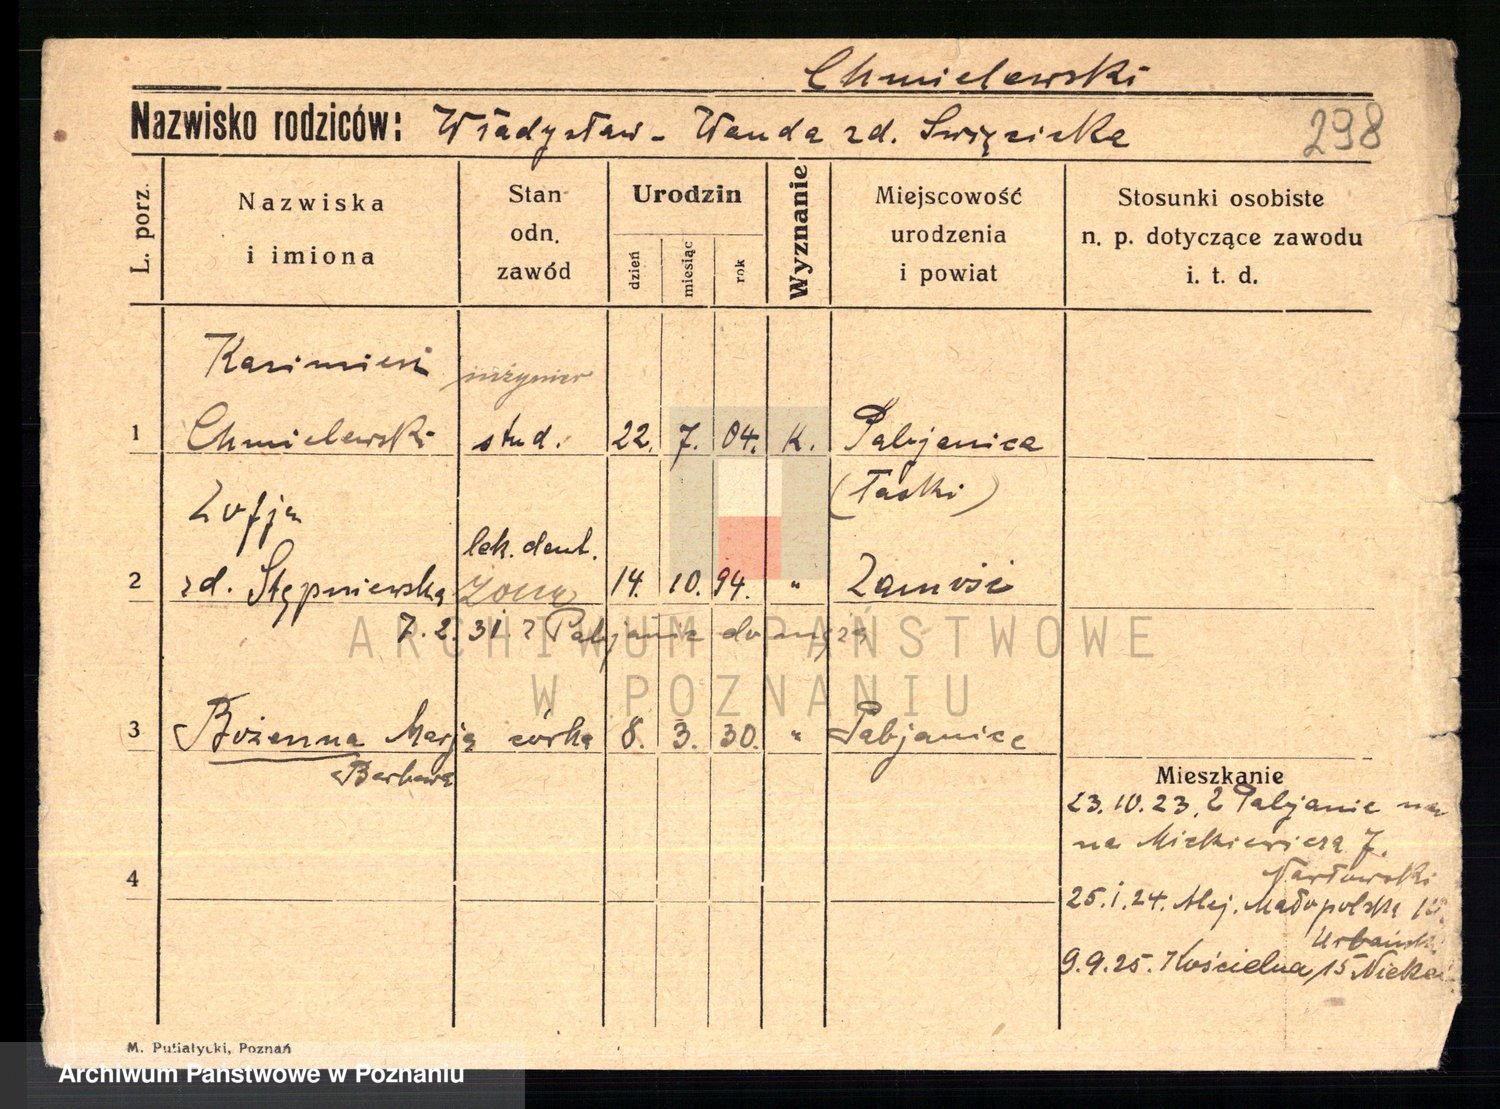 Chmielewski
Nazwisko rodziców: Władysław - Wanda zd. Święcicka
298
L. porz.
Nazwiska
i imiona
Stan
odn.
zawód
Urodzin
dzień
miesiąc
rok
Wyznanie
Miejscowość
urodzenia
i powiat
Stosunki osobiste
n. p. dotyczące zawodu
i. t. d.
Kazimierz inżynier
1 Chmielewski stud. 22. 7. 04. K. Pabjanice
(Łaski)
Zofja
lek. dent.
2 zd. Stępniewska żona 14. 10. 94. " Zamość
7. 2. 31. z Pabjanic do męża
3 Bożenna Marja córka 8. 3. 30. " Pabjanice
Barbara
Mieszkanie
23.10.23. z Pabjanic
na Mickiewicza 7.
4
25.1.24. Alej. Małopolska
9.9.25. Kościelna 15
ARCHIWUM PAŃSTWOWE
W POZNANIU
M. Putiatycki, Poznań
Archiwum Państwowe w Poznaniu